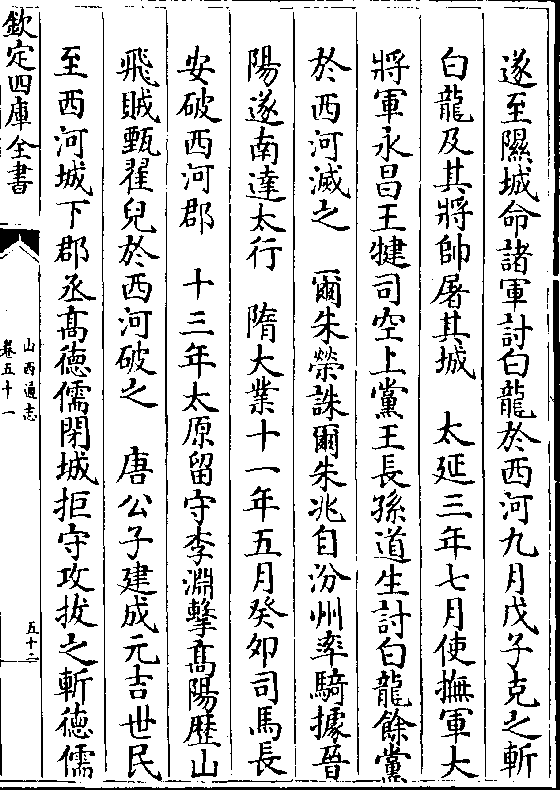 遂至隰城命諸軍討白龍於西河九月戊子克之斬
白龍及其將帥屠其城　太延三年七月使撫軍大
將軍永昌王犍司空上黨王長孫道生討白龍餘黨
於西河滅之　爾朱榮誅爾朱兆自汾州率騎據晉
陽遂南達太行　隋大業十一年五月癸卯司馬長
安破西河郡　十三年太原留守李淵擊高陽歷山
飛賊甄翟兒於西河破之　唐公子建成元吉世民
至西河城下郡丞高德儒閉城拒守攻拔之斬德儒
欽定四庫全書
山西通志
卷五十一
五十二